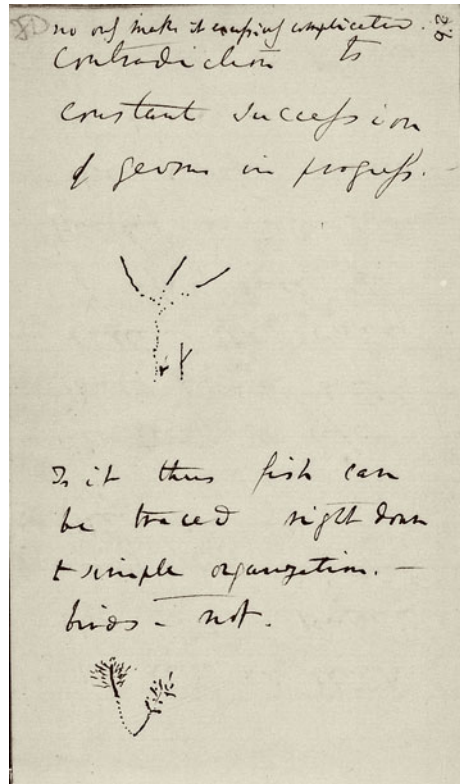 26
no only makes it excessively complicated.
Contradiction to
constant succession
of germs in progress. —
Is it thus fish can
be traced right down
to simple organization. —
birds — not.